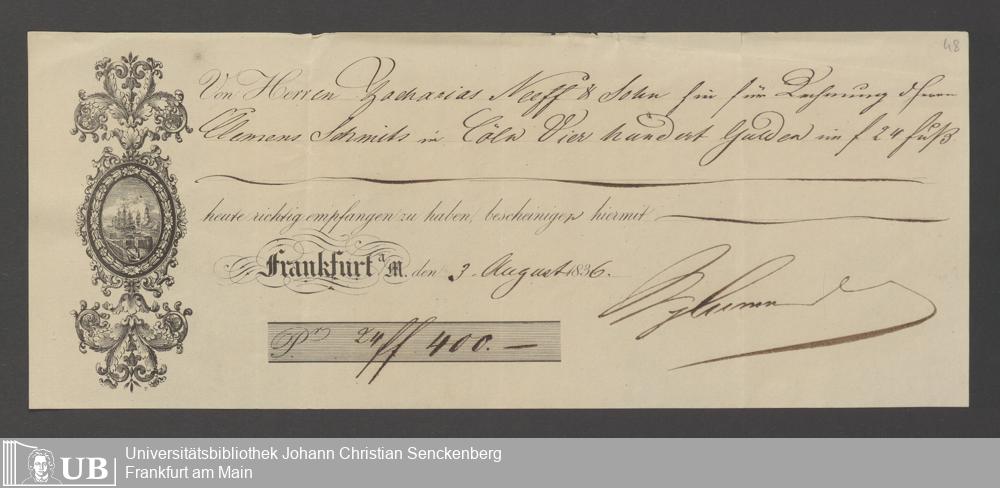 48
Von Herren Zacharias Neeff & Sohn hier für Rechnung d Herrn
Clemens Schmits in Cöln Vier hundert Gulden im f 24 fuß
heute richtig empfangen zu haben, bescheinigen hiermit
Frankfurt a/M. den 3 August 1836.
Pr 24/ff 400.—
Universitätsbibliothek Johann Christian Senckenberg
UB Frankfurt am Main